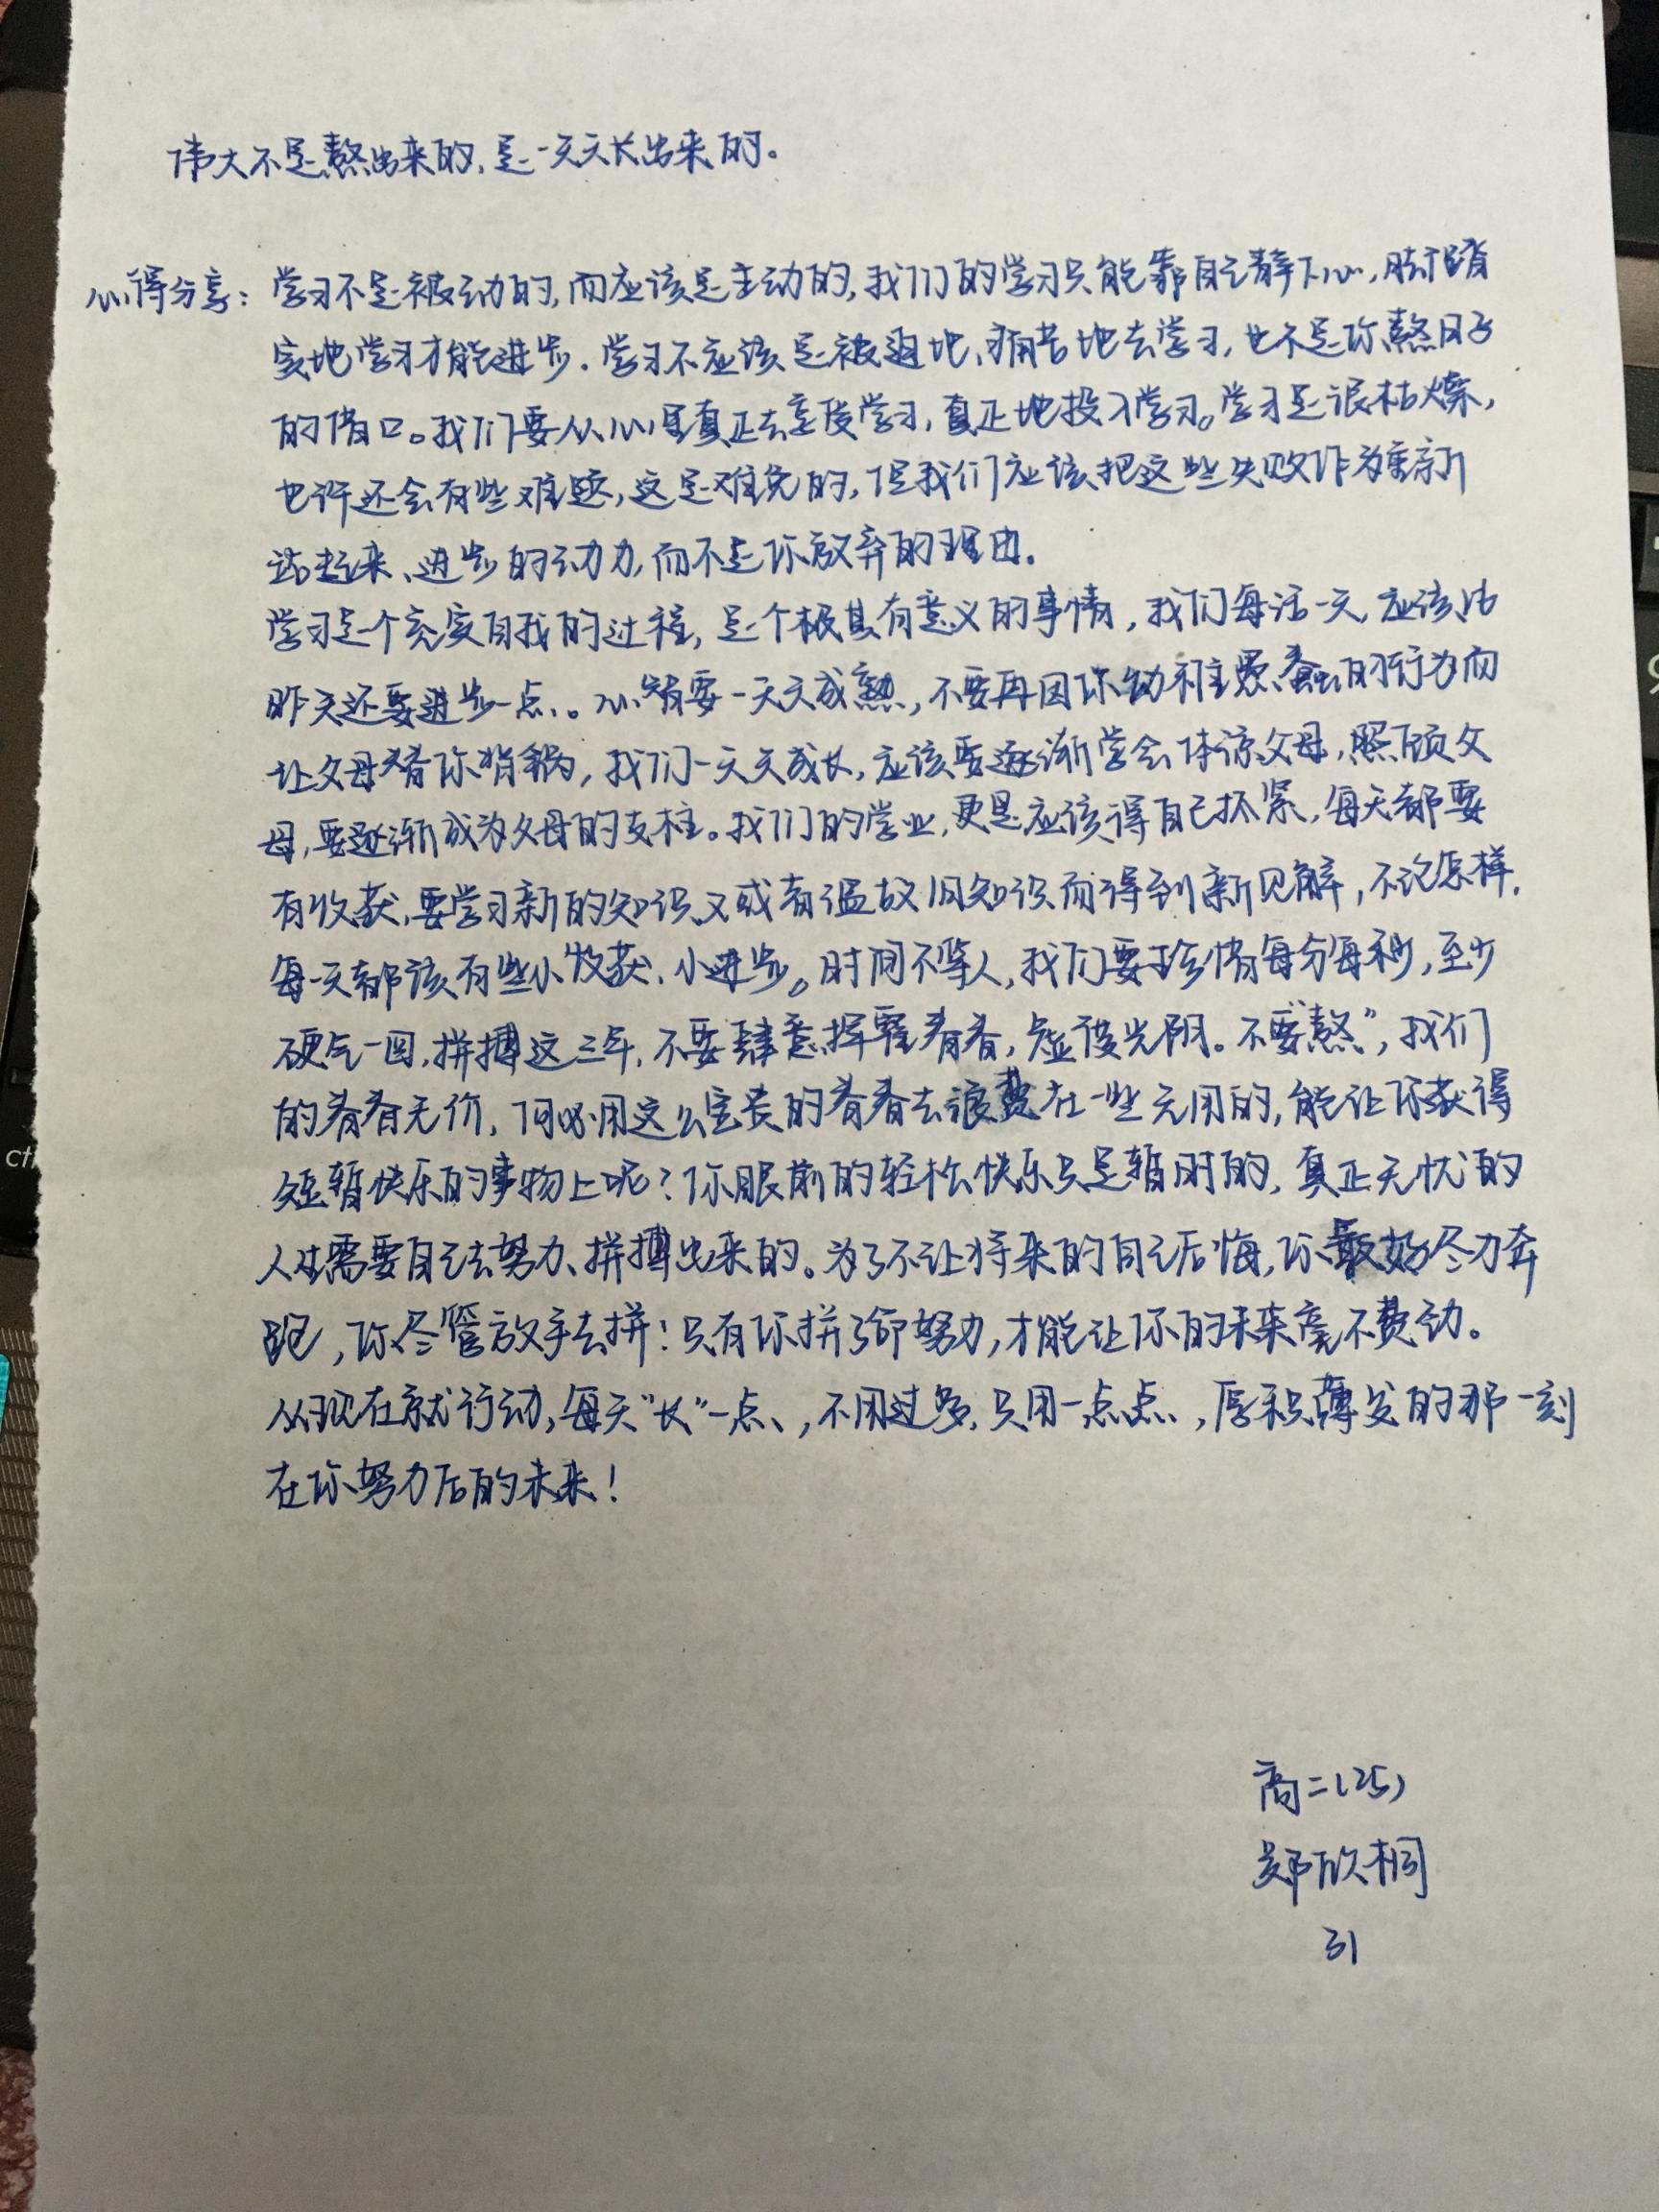 伟大不是熬出来的,是一天天长出来的。
心得分享：学习不是被动的,而应该是主动的,我们的学习只能靠自己静下心,脚踏
实地学习才能进步.学习不应该是被迫地、痛苦地去学习,也不是你熬日子
的借口。我们要从心里真正去享受学习,真正地投入学习。学习是很枯燥,
也许还会有些难题,这是难免的,但我们应该把这些失败作为重新
站起来、进步的动力,而不是你放弃的理由.
学习是个充实自我的过程,是个极其有意义的事情,我们每活一天,应该比
昨天还要进步一点.。心智要一天天成熟,不要再因你幼稚愚蠢的行为而
让父母替你背锅,我们一天天成长,应该要逐渐学会体谅父母,照顾父
母,要逐渐成为父母的支柱。我们的学业,更是应该得自己抓紧,每天都要
有收获,要学习新的知识又或者温故旧知识而得到新见解,不论怎样,
每一天都该有些小收获、小进步。时间不等人,我们要珍惜每分每秒,至少
硬气一回,拼搏这三年,不要肆意挥霍青春,虚度光阴。不要“熬”,我们
的青春无价,何必用这么宝贵的青春去浪费在一些无用的,能让你获得
短暂快乐的事物上呢?你眼前的轻松快乐只是暂时的,真正无忧的
人生需要自己去努力、拼搏出来的。为了不让将来的自己后悔,你最好尽力奔
跑,你尽管放手去拼!只有你拼了命努力,才能让你的未来毫不费劲。
从现在就行动,每天"长"一点、,不用过多,只用一点点、,厚积薄发的那一刻
在你努力后的未来!
高二(25)
郑欣桐
31